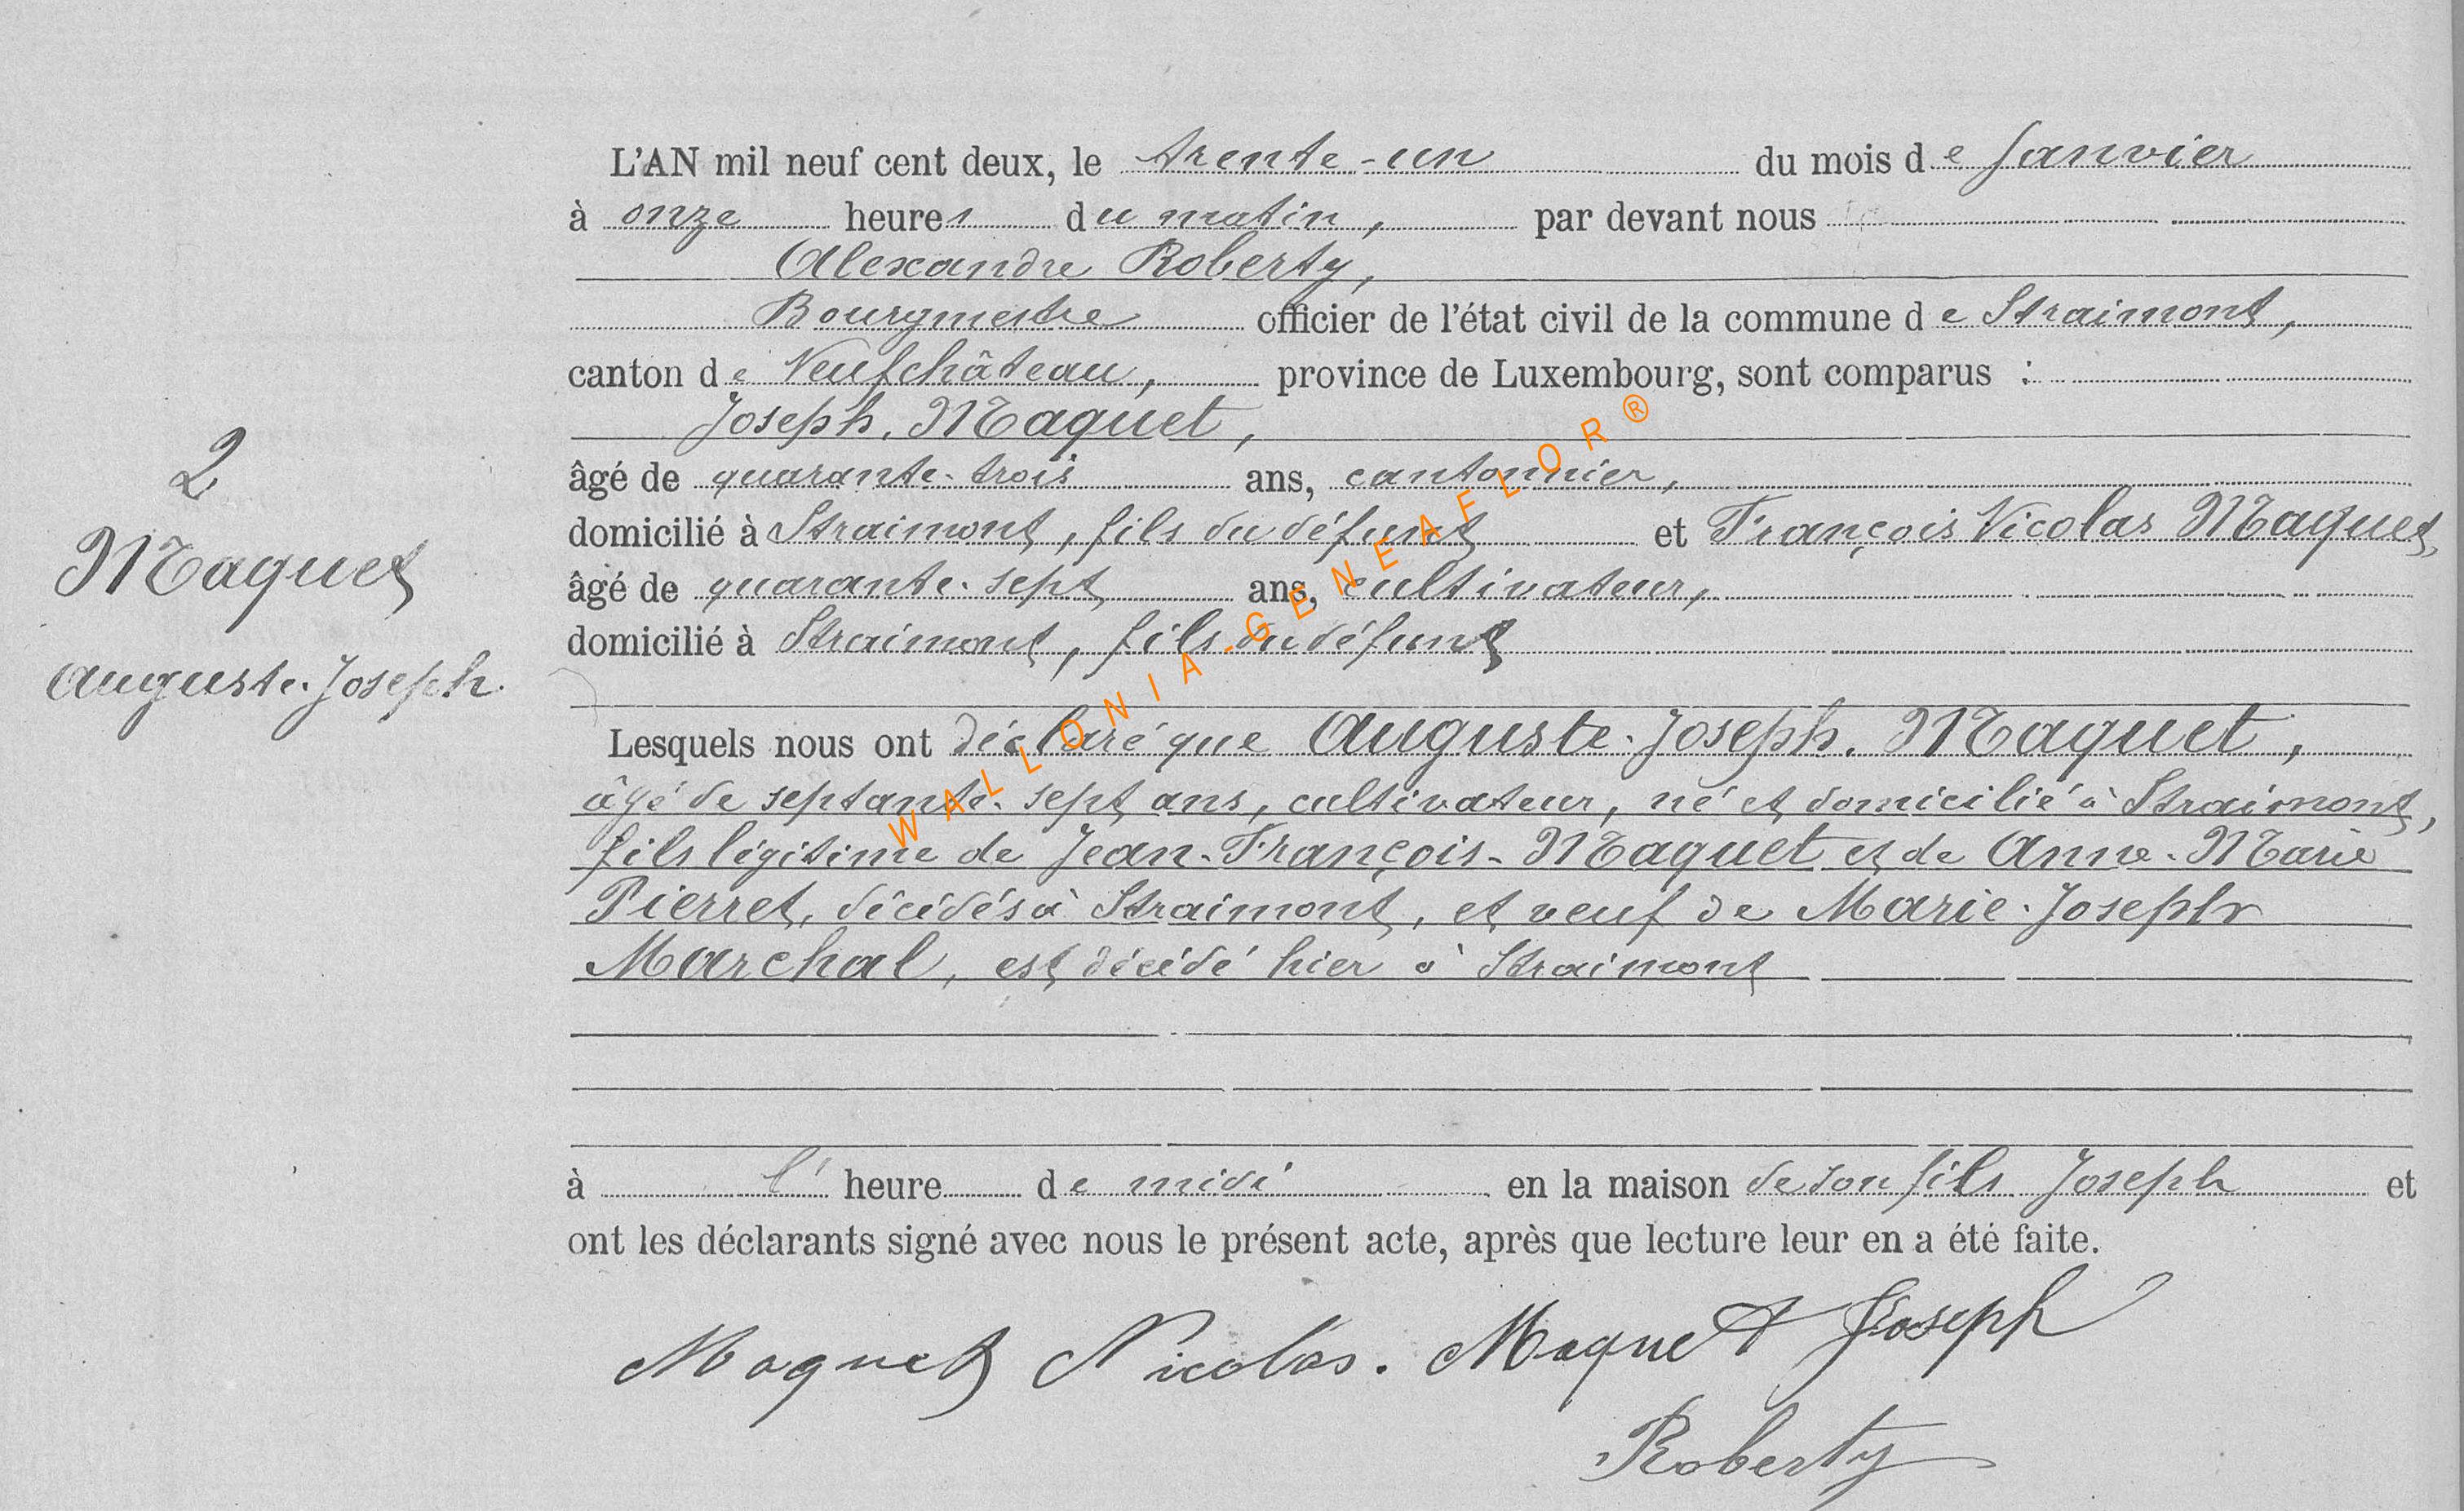 L'AN mil neuf cent deux, le trente-un du mois de Janvier
à onze heures du matin, par devant nous
Alexandre Roberty,
Bourgmestre officier de l'état civil de la commune de Straimont,
canton de Neufchâteau, province de Luxembourg, sont comparus :
Joseph. Maquet,
âgé de quarante-trois ans, cantonnier,
domicilié à Straimont, fils du défunt et François Nicolas Maquet
âgé de quarante-sept ans, cultivateur,
domicilié à Straimont, fils du défunt
2
Maquet
Auguste-Joseph.
Lesquels nous ont déclaré que Auguste-Joseph. Maquet,
âgé de septante-sept ans, cultivateur, né et domicilié à Straimont,
fils légitime de Jean-François-Maquet et de Anne-Marie
Pierret, décédés à Straimont, et veuf de Marie-Joseph
Marchal, est décédé hier à Straimont
à l' heure de midi en la maison de son fils Joseph et
ont les déclarants signé avec nous le présent acte, après que lecture leur en a été faite.
Maquet Nicolas. Maquet Joseph
Roberty
WALLONIA-GENEAFLOR®